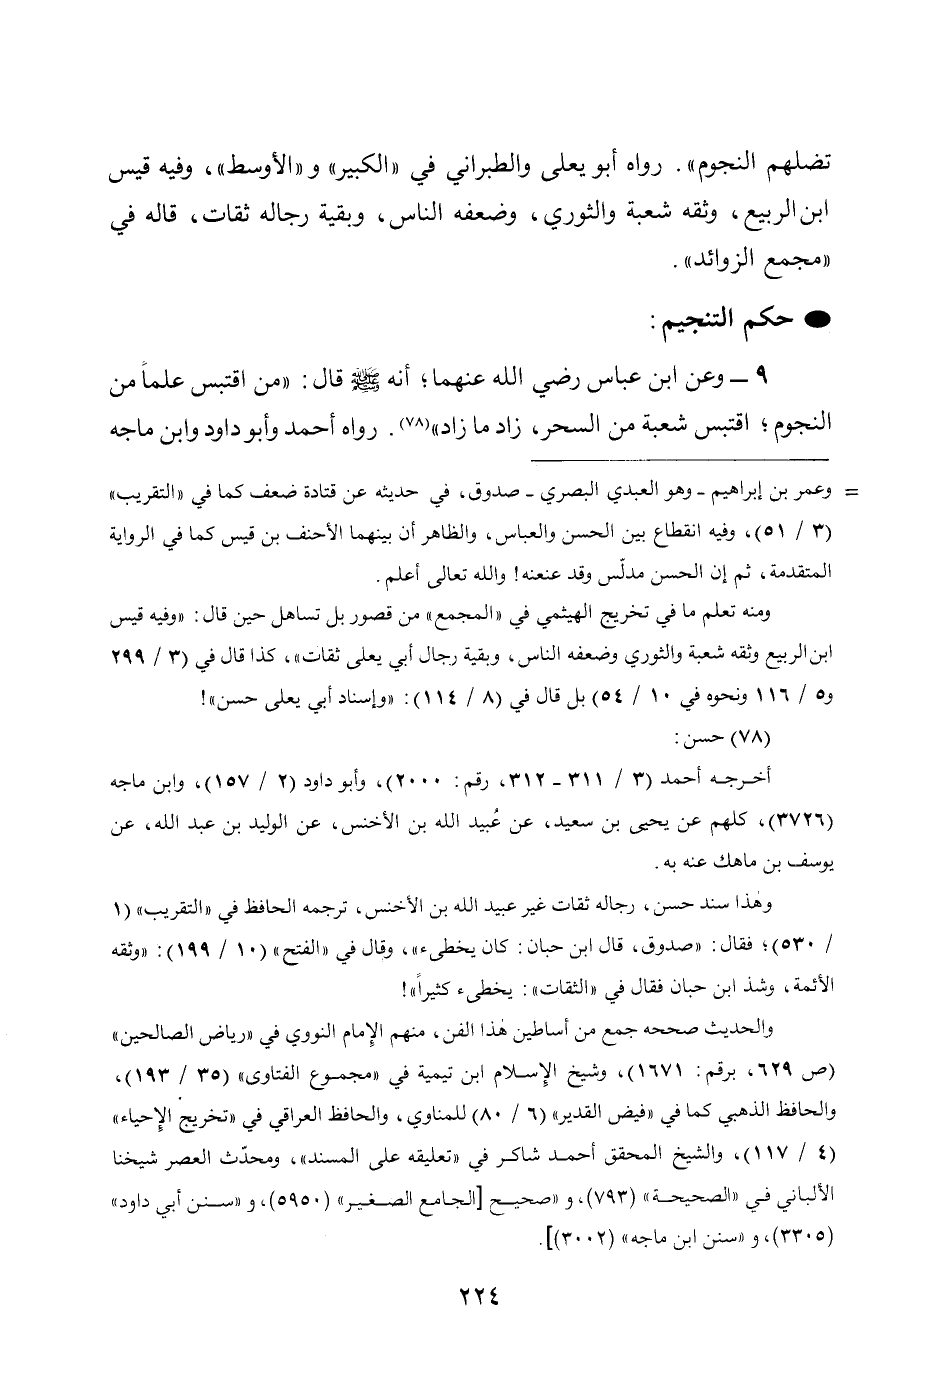 تضلهم النجوم». رواه أبو يعلى والطبراني في «الكبير» و«الأوسط»، وفيه قيس
ابن الربيع، وثقه شعبة والثوري، وضعفه الناس، وبقية رجاله ثقات، قاله في
«مجمع الزوائد».
● حكم التنجيم:
٩ ــ وعن ابن عباس رضي الله عنهما؛ أنه ﷺ قال: «من اقتبس علماً من
النجوم؛ اقتبس شعبة من السحر، زاد ما زاد»(٧٨). رواه أحمد وأبو داود وابن ماجه
= وعمر بن إبراهيم ـ وهو العبدي البصري ـ صدوق، في حديثه عن قتادة ضعف كما في «التقريب»
(٣ / ٥١)، وفيه انقطاع بين الحسن والعباس، والظاهر أن بينهما الأحنف بن قيس كما في الرواية
المتقدمة، ثم إن الحسن مدلّس وقد عنعنه! والله تعالى أعلم.
ومنه تعلم ما في تخريج الهيثمي في «المجمع» من قصور بل تساهل حين قال: «وفيه قيس
ابن الربيع وثقه شعبة والثوري وضعفه الناس، وبقية رجال أبي يعلى ثقات»، كذا قال في (٣ / ٢٩٩
و٥ / ١١٦ ونحوه في ١٠ / ٥٤) بل قال في (٨ / ١١٤): «وإسناد أبي يعلى حسن»!
(٧٨) حسن:
أخرجه أحمد (٣ / ٣١١ ـ ٣١٢، رقم: ٢٠٠٠)، وأبو داود (٢ / ١٥٧)، وابن ماجه
(٣٧٢٦)، كلهم عن يحيى بن سعيد، عن عُبيد الله بن الأخنس، عن الوليد بن عبد الله، عن
يوسف بن ماهك عنه به.
وهٰذا سند حسن، رجاله ثقات غير عبيد الله بن الأخنس، ترجمه الحافظ في «التقريب» (١
/ ٥٣٠)؛ فقال: «صدوق، قال ابن حبان: كان يخطىء»، وقال في «الفتح» (١٠ / ١٩٩): «وثقه
الأئمة، وشذ ابن حبان فقال في «الثقات»: يخطىء كثيراً»!
والحديث صححه جمع من أساطين هٰذا الفن، منهم الإمام النووي في «رياض الصالحين»
(ص ٦٢٩، برقم: ١٦٧١)، وشيخ الإسلام ابن تيمية في «مجموع الفتاوى» (٣٥ / ١٩٣)،
والحافظ الذهبي كما في «فيض القدير» (٦ / ٨٠) للمناوي، والحافظ العراقي في «تخريج الإحياء»
(٤ / ١١٧)، والشيخ المحقق أحمد شاكر في «تعليقه على المسند»، ومحدّث العصر شيخنا
الألباني في «الصحيحة» (٧٩٣)، و«صحيح [الجامع الصغير» (٥٩٥٠)، و«سنن أبي داود»
(٣٣٠٥)، و«سنن ابن ماجه» (٣٠٠٢)].
٢٢٤